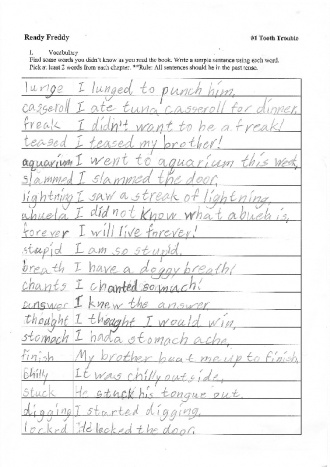 Ready Freddy #1 Tooth Trouble
1. Vocabulary
Find some words you didn't know as you read the book. Write a simple sentence using each word.
Pick at least 2 words from each chapter. **Rule: All sentences should be in the past tense.
lunge I lunged to punch him.
casseroll I ate tuna casseroll for dinner.
freak I didn't want to be a freak!
teased I teased my brother!
aquarium I went to aquarium this week.
slammed I slammed the door.
lightning I saw a streak of lightning.
abuela I did not know what abuela is.
forever I will live forever!
stupid I am so stupid.
breath I have a doggy breath!
chants I chanted so much!
answer I knew the answer
thought I thought I would win.
stomach I had a stomach ache.
finish My brother beat me up to finish
chilly It was chilly outside.
stuck He stuck his tongue out.
digging I started digging.
locked He locked the door.